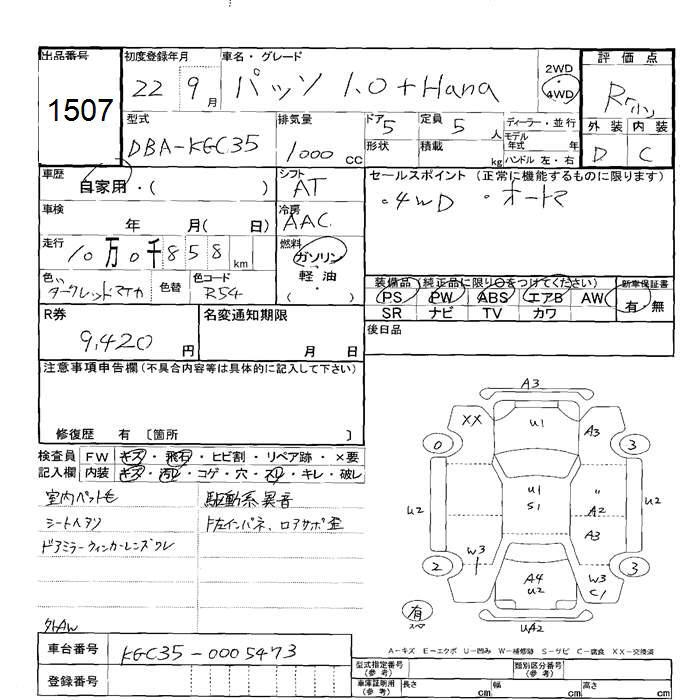 出品番号
1507
初度登録年月
22 9月
車名・グレード
パッソ 1.0+Hana
2WD
・
4WD
評価点
R
外装 内装
D C
型式
DBA-KGC35
排気量
1000 cc
ドア 5
形状
定員 5 人
積載 kg
ディーラー・並行
モデル年式 年
ハンドル 左・右
車歴
自家用・( )
シフト
AT
セールスポイント (正常に機能するものに限ります)
・4WD ・オートマ
車検
年 月( 日)
冷房
AAC
走行
10万0千858 km
燃料
ガソリン
・
軽油
( )
色
ダークレッドマイカ
色替
色コード
R54
装備品 (純正品に限り○をつけてください)
PS PW ABS エアB AW
SR ナビ TV カワ
新車保証書
有 無
R券
9,420 円
名変通知期限
月 日
後日品
注意事項申告欄(不具合内容等は具体的に記入して下さい)
修復歴 有 〔箇所 〕
検査員記入欄
FW キズ・飛石・ヒビ割・リペア跡・×要
内装 キズ・汚レ・コゲ・穴・スレ・キレ・破レ
室内ペット毛
シートヘタリ
ドアミラーウィンカーレンズワレ
外AW
駆動系異音
ト左インパネ、ロアサポ歪
A3
XX
U1
A3
0
3
U1
S1
〃
A2
A3
U2
U2
W3
2
A4
U2
W3
C1
3
有
スペア
UA2
A-キズ E-エクボ U-凹み W-補修跡 S-サビ C-腐食 XX-交換済
車台番号
KGC35-0005473
型式指定番号
(参考)
類別区分番号
(参考)
車庫証明用
(参考)
長さ cm
幅 cm
高さ cm